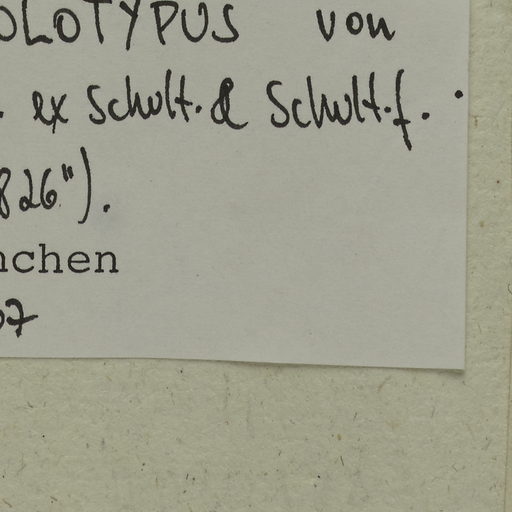 OLOTYPUS von
. ex Schult. & Schult. f.
826").
nchen
07